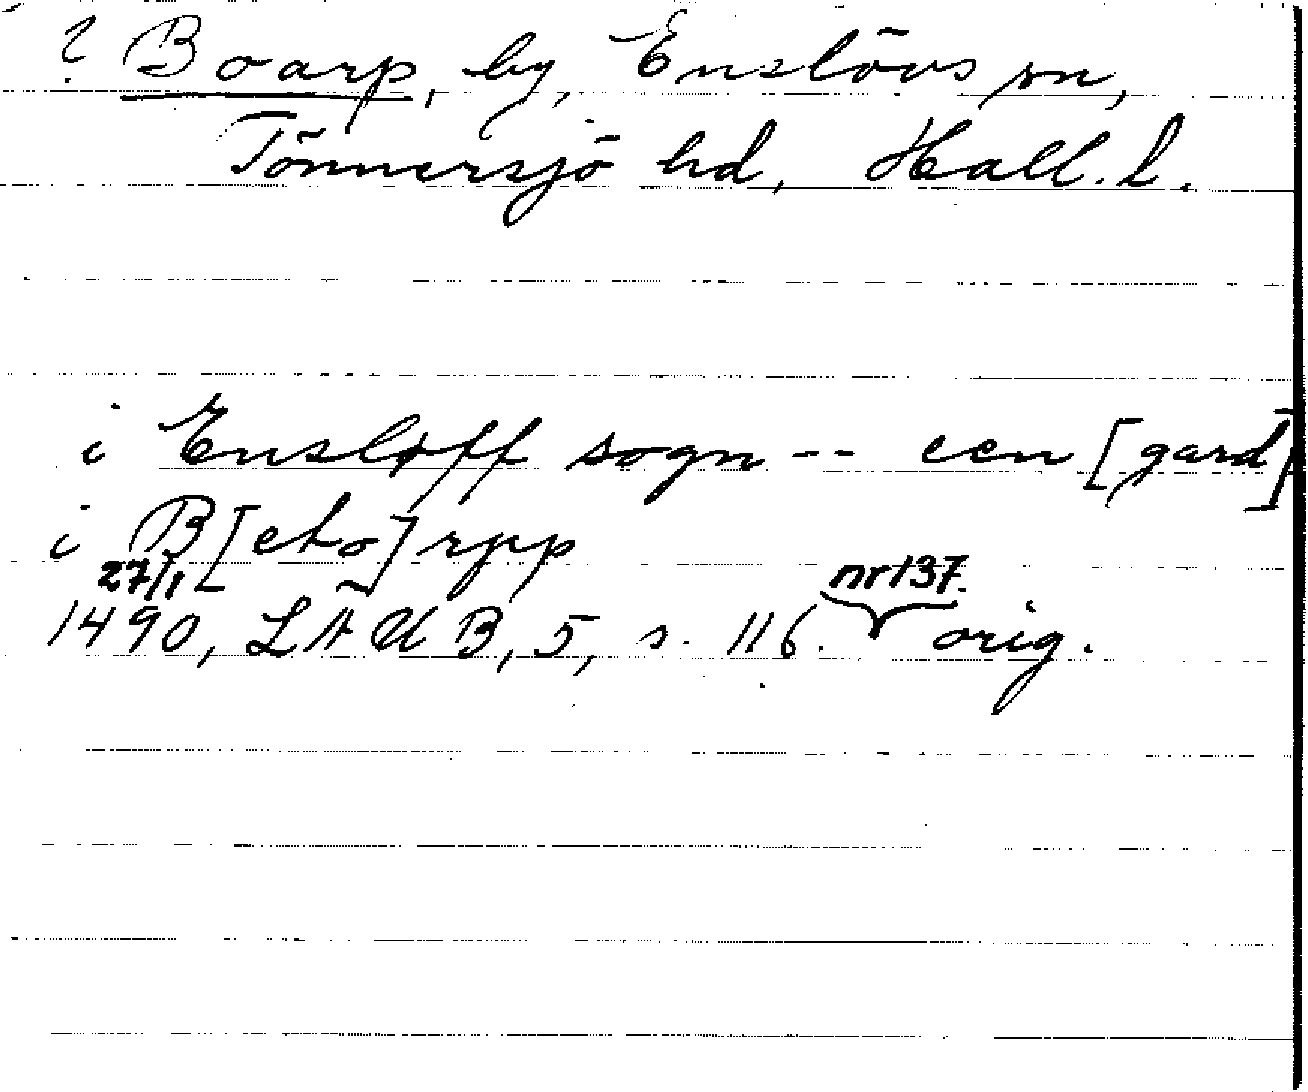 ? Boarp, by, Enslövs sn,
Tönnersjö hd, Hall. l.
i Ensløff sogn -- een [gard]
i B[eto]rpp
27/1 nr 137.
1490, LÄUB, 5, s. 116. orig.